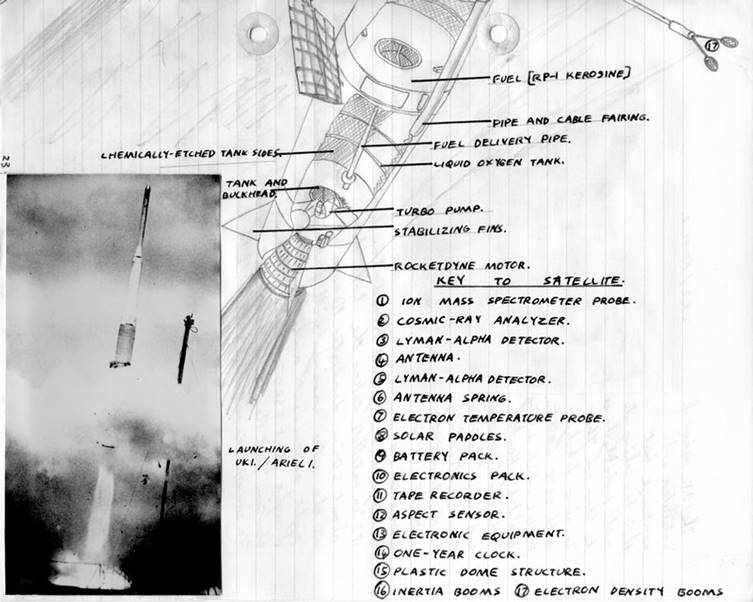 FUEL [RP-1 KEROSINE]
PIPE AND CABLE FAIRING.
FUEL DELIVERY PIPE.
CHEMICALLY-ETCHED TANK SIDES.
LIQUID OXYGEN TANK.
TANK AND
BULKHEAD.
TURBO PUMP.
STABILIZING FINS.
ROCKETDYNE MOTOR.
KEY TO SATELLITE.
1 ION MASS SPECTROMETER PROBE.
2 COSMIC-RAY ANALYZER.
3 LYMAN-ALPHA DETECTOR.
4 ANTENNA.
5 LYMAN-ALPHA DETECTOR.
6 ANTENNA SPRING.
7 ELECTRON TEMPERATURE PROBE.
8 SOLAR PADDLES.
9 BATTERY PACK.
10 ELECTRONICS PACK.
11 TAPE RECORDER.
12 ASPECT SENSOR.
13 ELECTRONIC EQUIPMENT.
14 ONE-YEAR CLOCK.
15 PLASTIC DOME STRUCTURE.
16 INERTIA BOOMS 17 ELECTRON DENSITY BOOMS
LAUNCHING OF
UK1./ARIEL 1.
17
23.